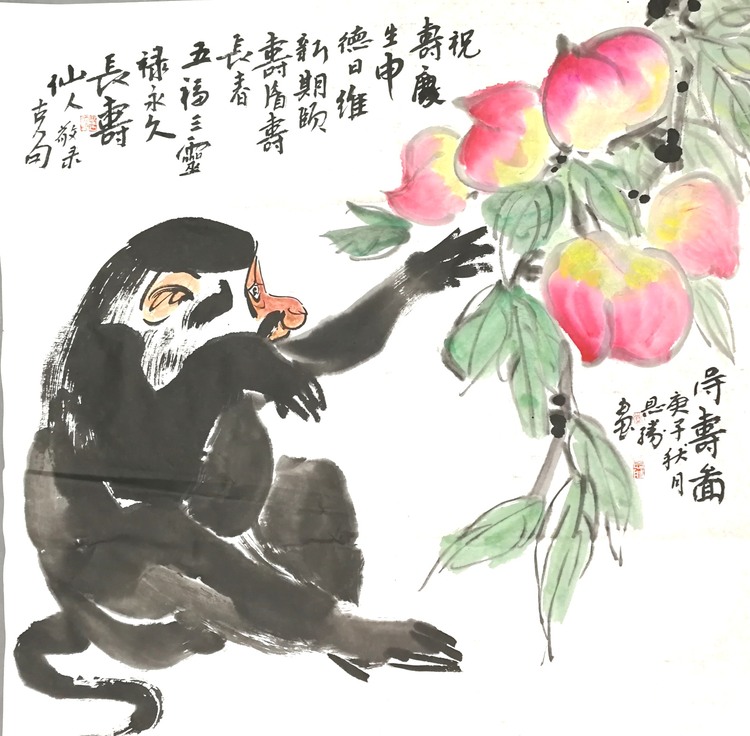 祝
壽慶
生申
德日維
新期頤
壽富壽
長春
五福三靈
禄永久
長壽
仙人敬录
古句
得壽圖
庚子秋月
恩勝
畫